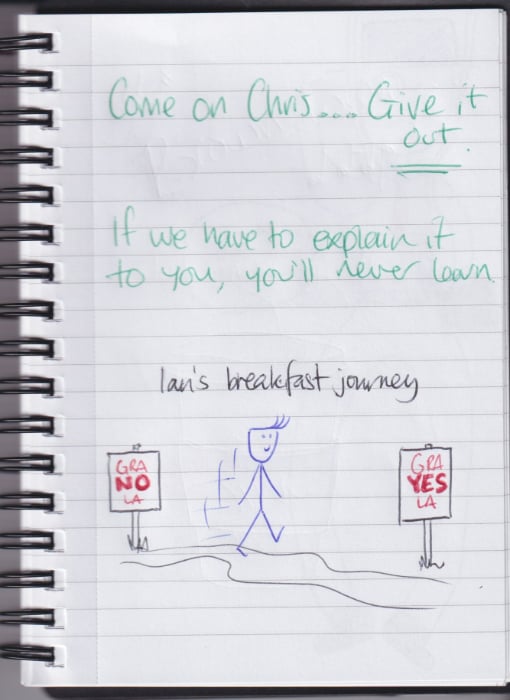 Come on Chris.... Give it
out.
If we have to explain it
to you, you'll never learn.
Ian's breakfast journey
GRA
NO
LA
GRA
YES
LA